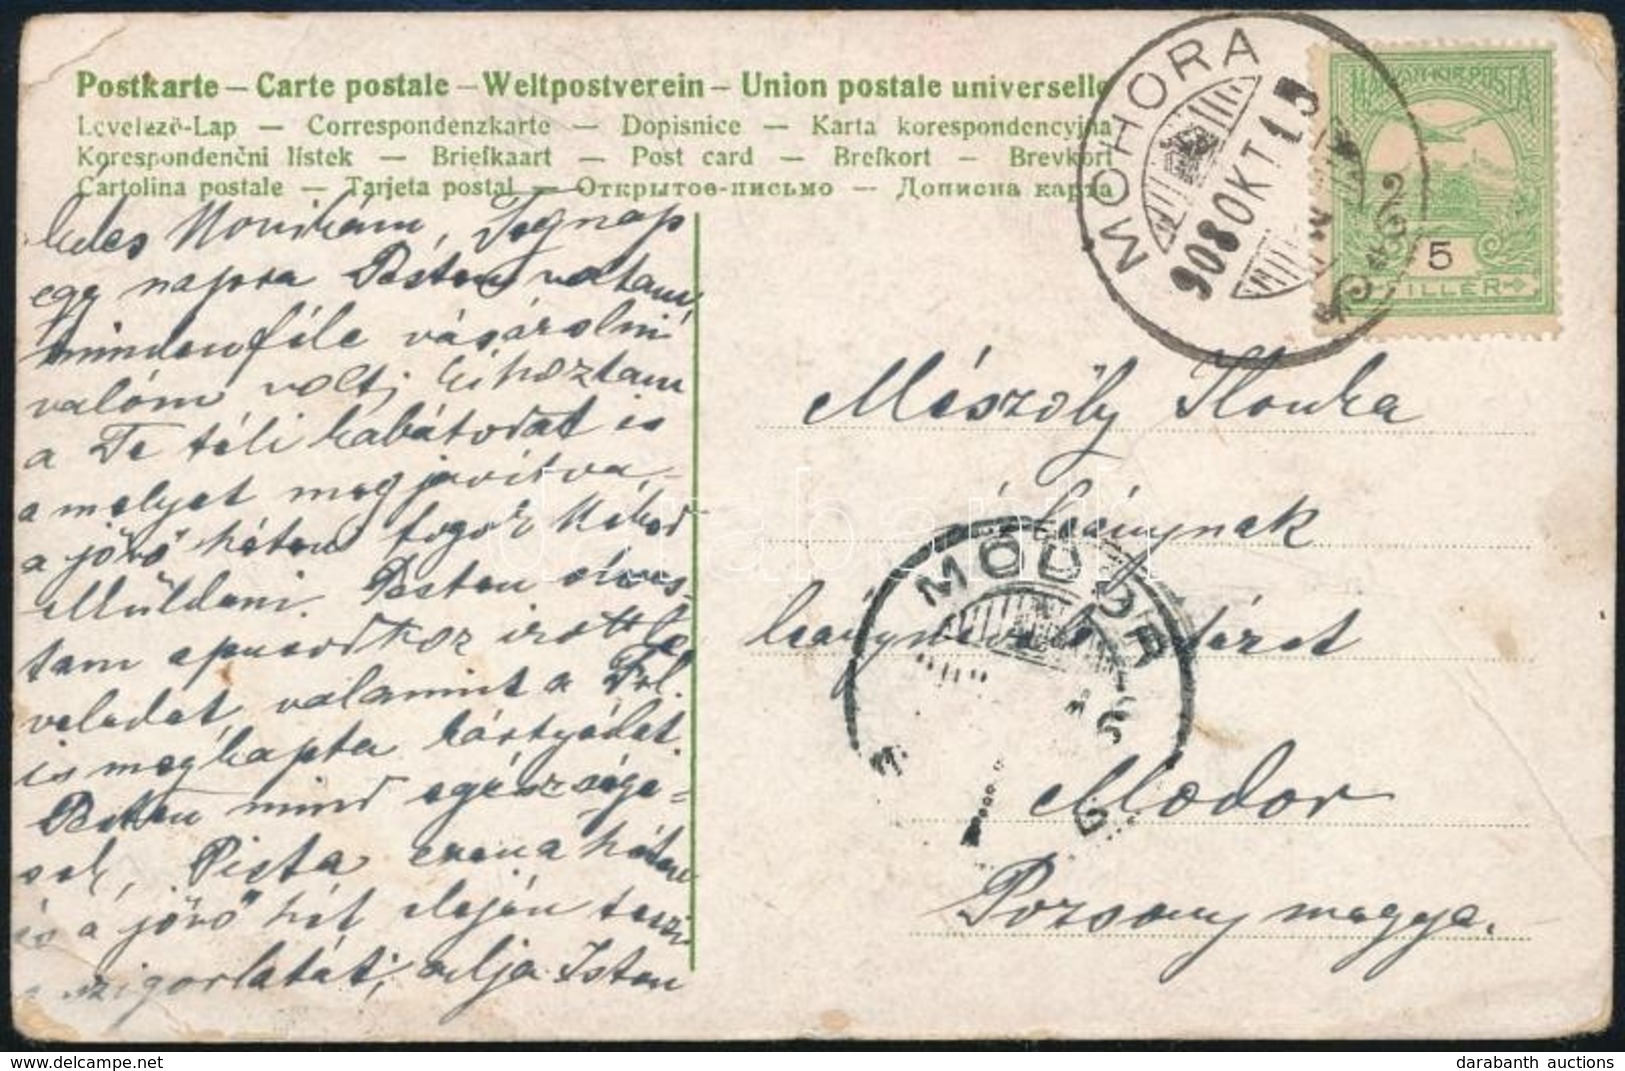 Postkarte – Carte postale – Weltpostverein – Union postale universelle
Levelező-Lap — Correspondenzkarte — Dopisnice — Karta korespondencyjna
Korespondenční lístek — Briefkaart — Post card — Brefkort — Brevkort
Cartolina postale — Tarjeta postal — Открытое-письмо — Дописна карта
MOHORA
908 OKT 15
MAGYAR KIR. POSTA
5
FILLÉR
Édes Tegnap
egy napra Pesten voltam
mindenféle vásárolni
valóm volt; kihoztam
a Te téli kabátodat is
amelyet megjavítva
a jövő héten fogok Néked
elküldeni. Pesten olvas-
tam apusodhoz irott le-
veledet, valamint a
is megkapta kártyádat.
Pesten mind egészsége-
sek, Pista ezen a héten
és a jövő hét elején teszi
szigorlatát; adja Isten
Mészöly Ilonka
leánynak
leánynevelő intézet
Modor
Pozsony megye.
MODOR
darabanth
delcampe.net
darabanth auctions